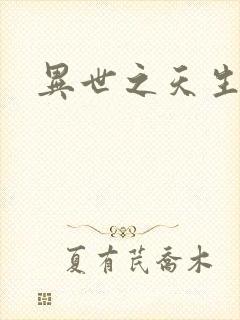 異世之天生
夏有芪喬木